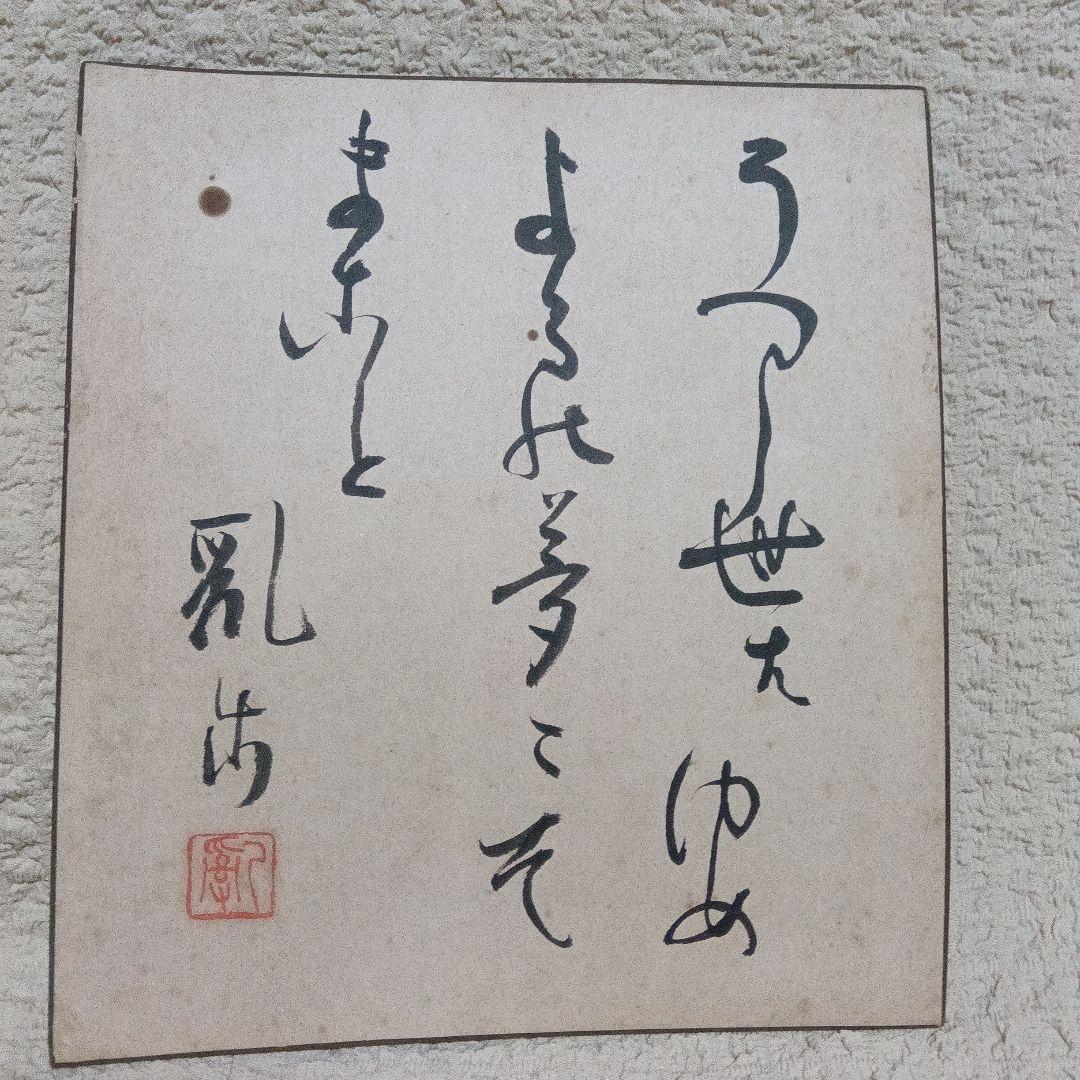 うつし世は ゆめ
よるの夢こそ
まこと
乱歩
乱